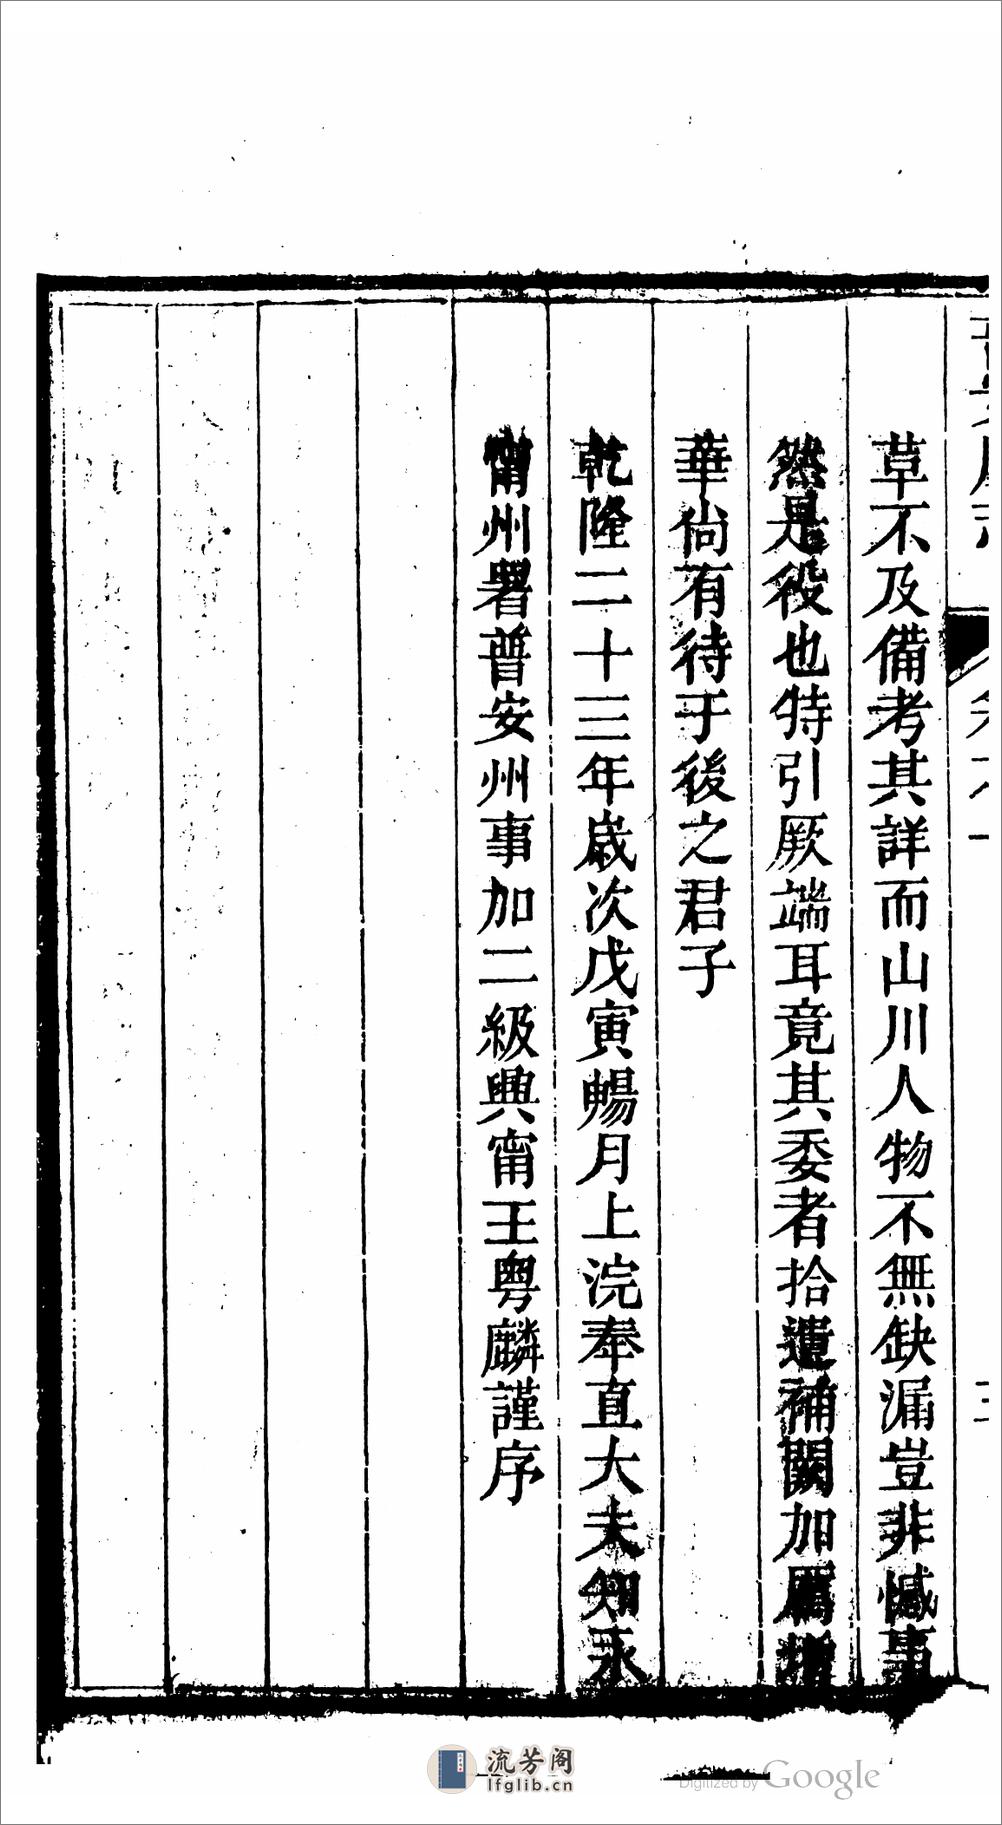 草不及備考其詳而山川人物不無缺漏豈非憾事
然是役也特引厥端耳竟其委者拾遺補闕加厲增
華尙有待于後之君子
乾隆二十三年歲次戊寅暢月上浣奉直大夫知永
甯州署普安州事加二級興甯王粵麟謹序
流芳阁
lfglib.cn
Digitized by Google